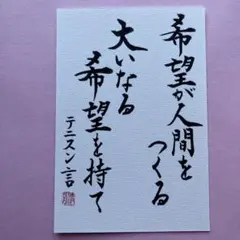 希望が人間を
つくる
大いなる
希望を持て
テニスン言